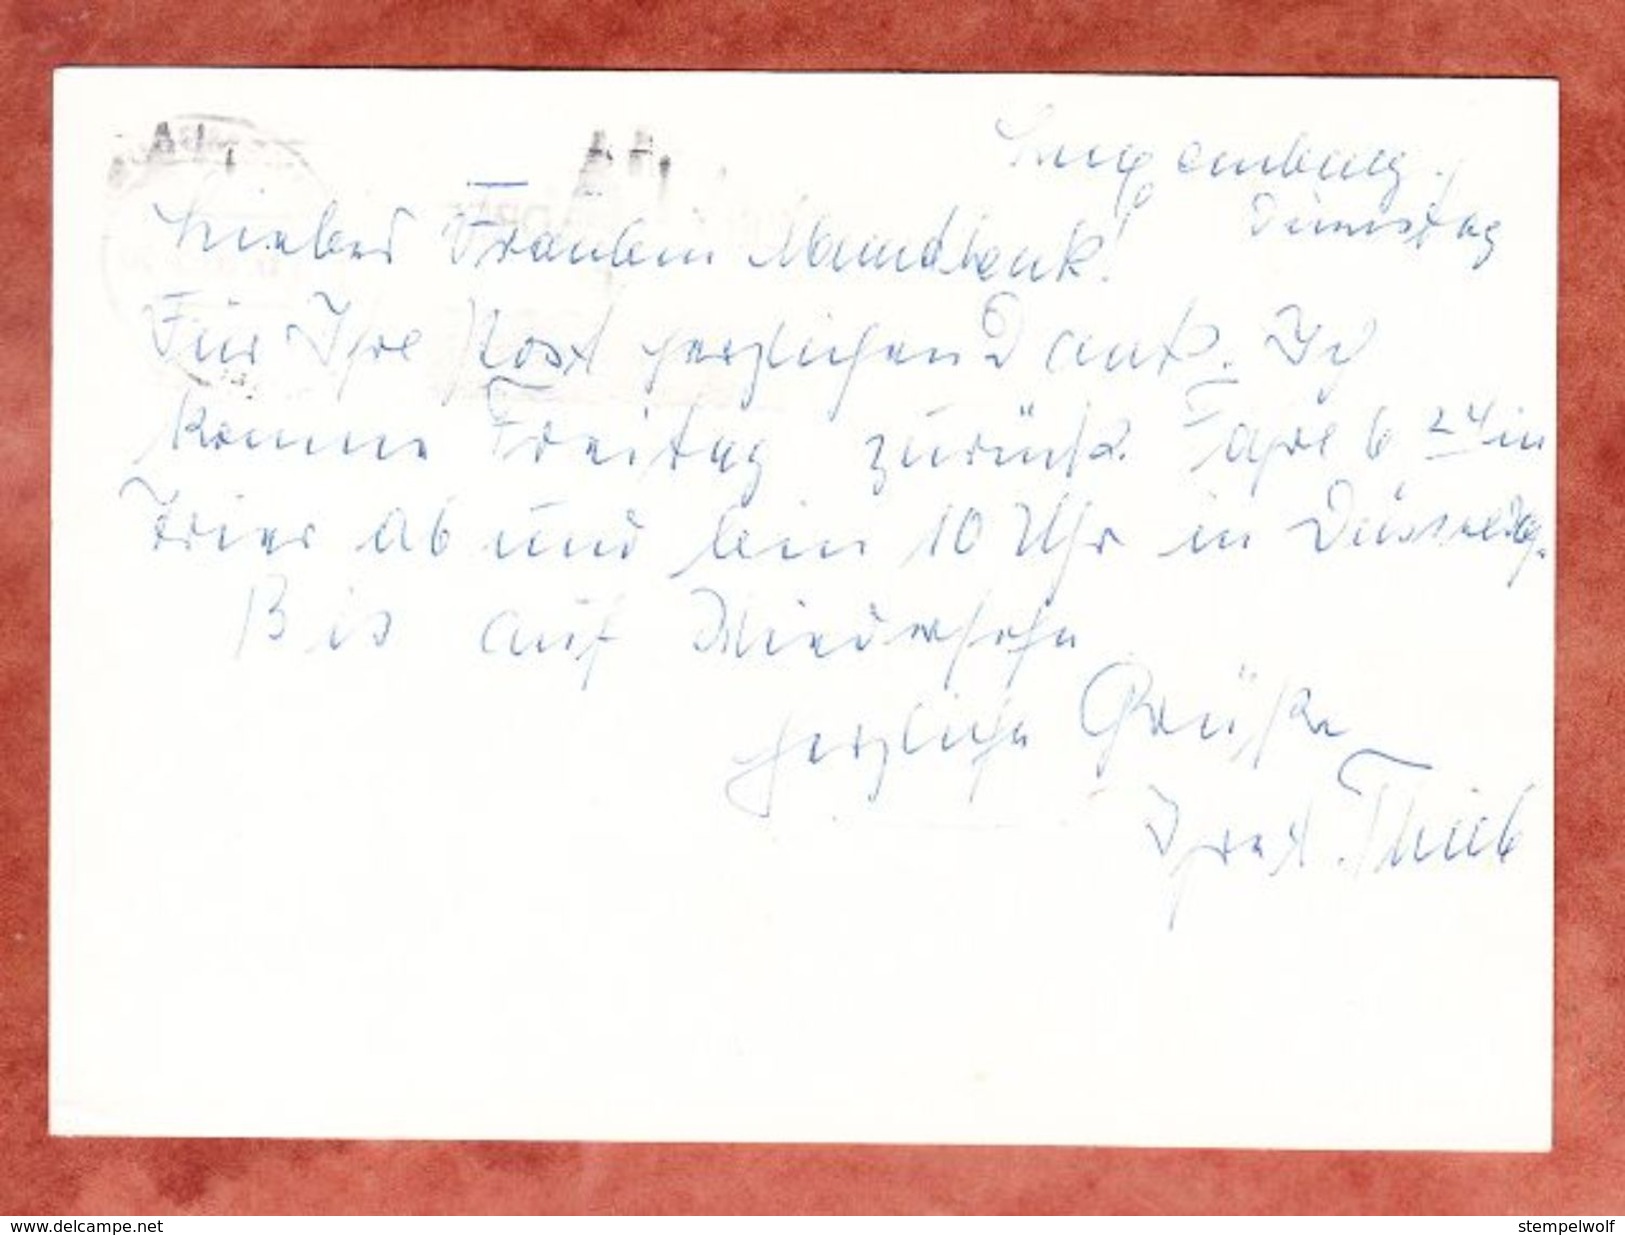 Luxemburg,
Dienstag
Liebes Fräulein
Für Ihre Post herzlichen Dank. Ich
komme Freitag zurück. Fahre 6 24 in
Trier ab und bin 10 Uhr in Düsseldf.
Bis auf Wiedersehn
herzliche Grüße
Ihre
www.delcampe.net
stempelwolf